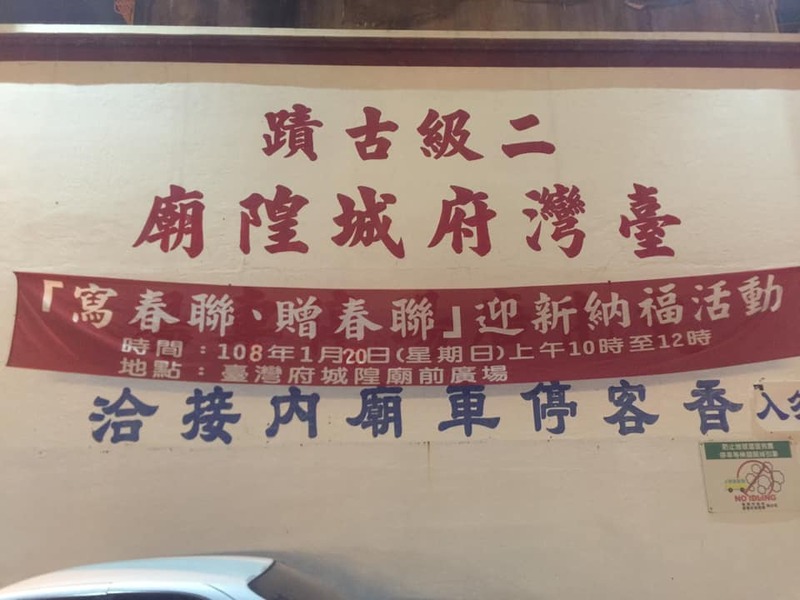 二級古蹟
臺灣府城隍廟
「寫春聯、贈春聯」迎新納福活動
時間：108年1月20日(星期日)上午10時至12時
地點：臺灣府城隍廟前廣場
香客停車廟內接洽
入
NO IDLING